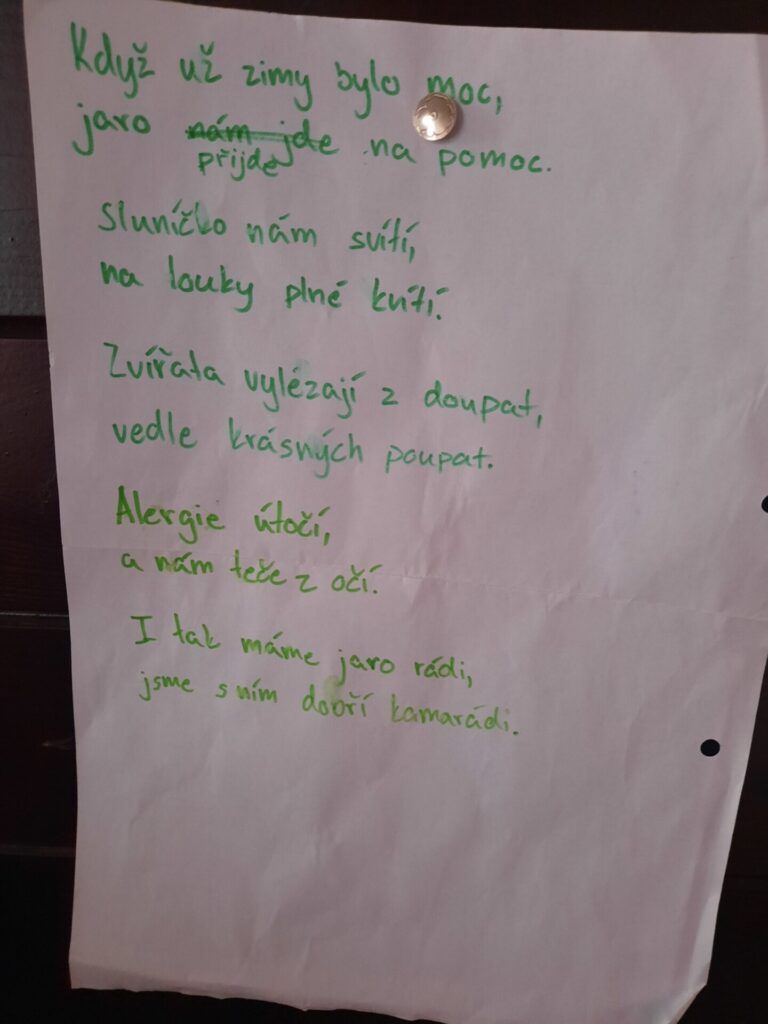 Když už zimy bylo moc,
jaro nám jde na pomoc.
přijde
Sluníčko nám svítí,
na louky plné kvítí.
Zvířata vylézají z doupat,
vedle krásných poupat.
Alergie útočí,
a nám teče z očí.
I tak máme jaro rádi,
jsme s ním dobří kamarádi.